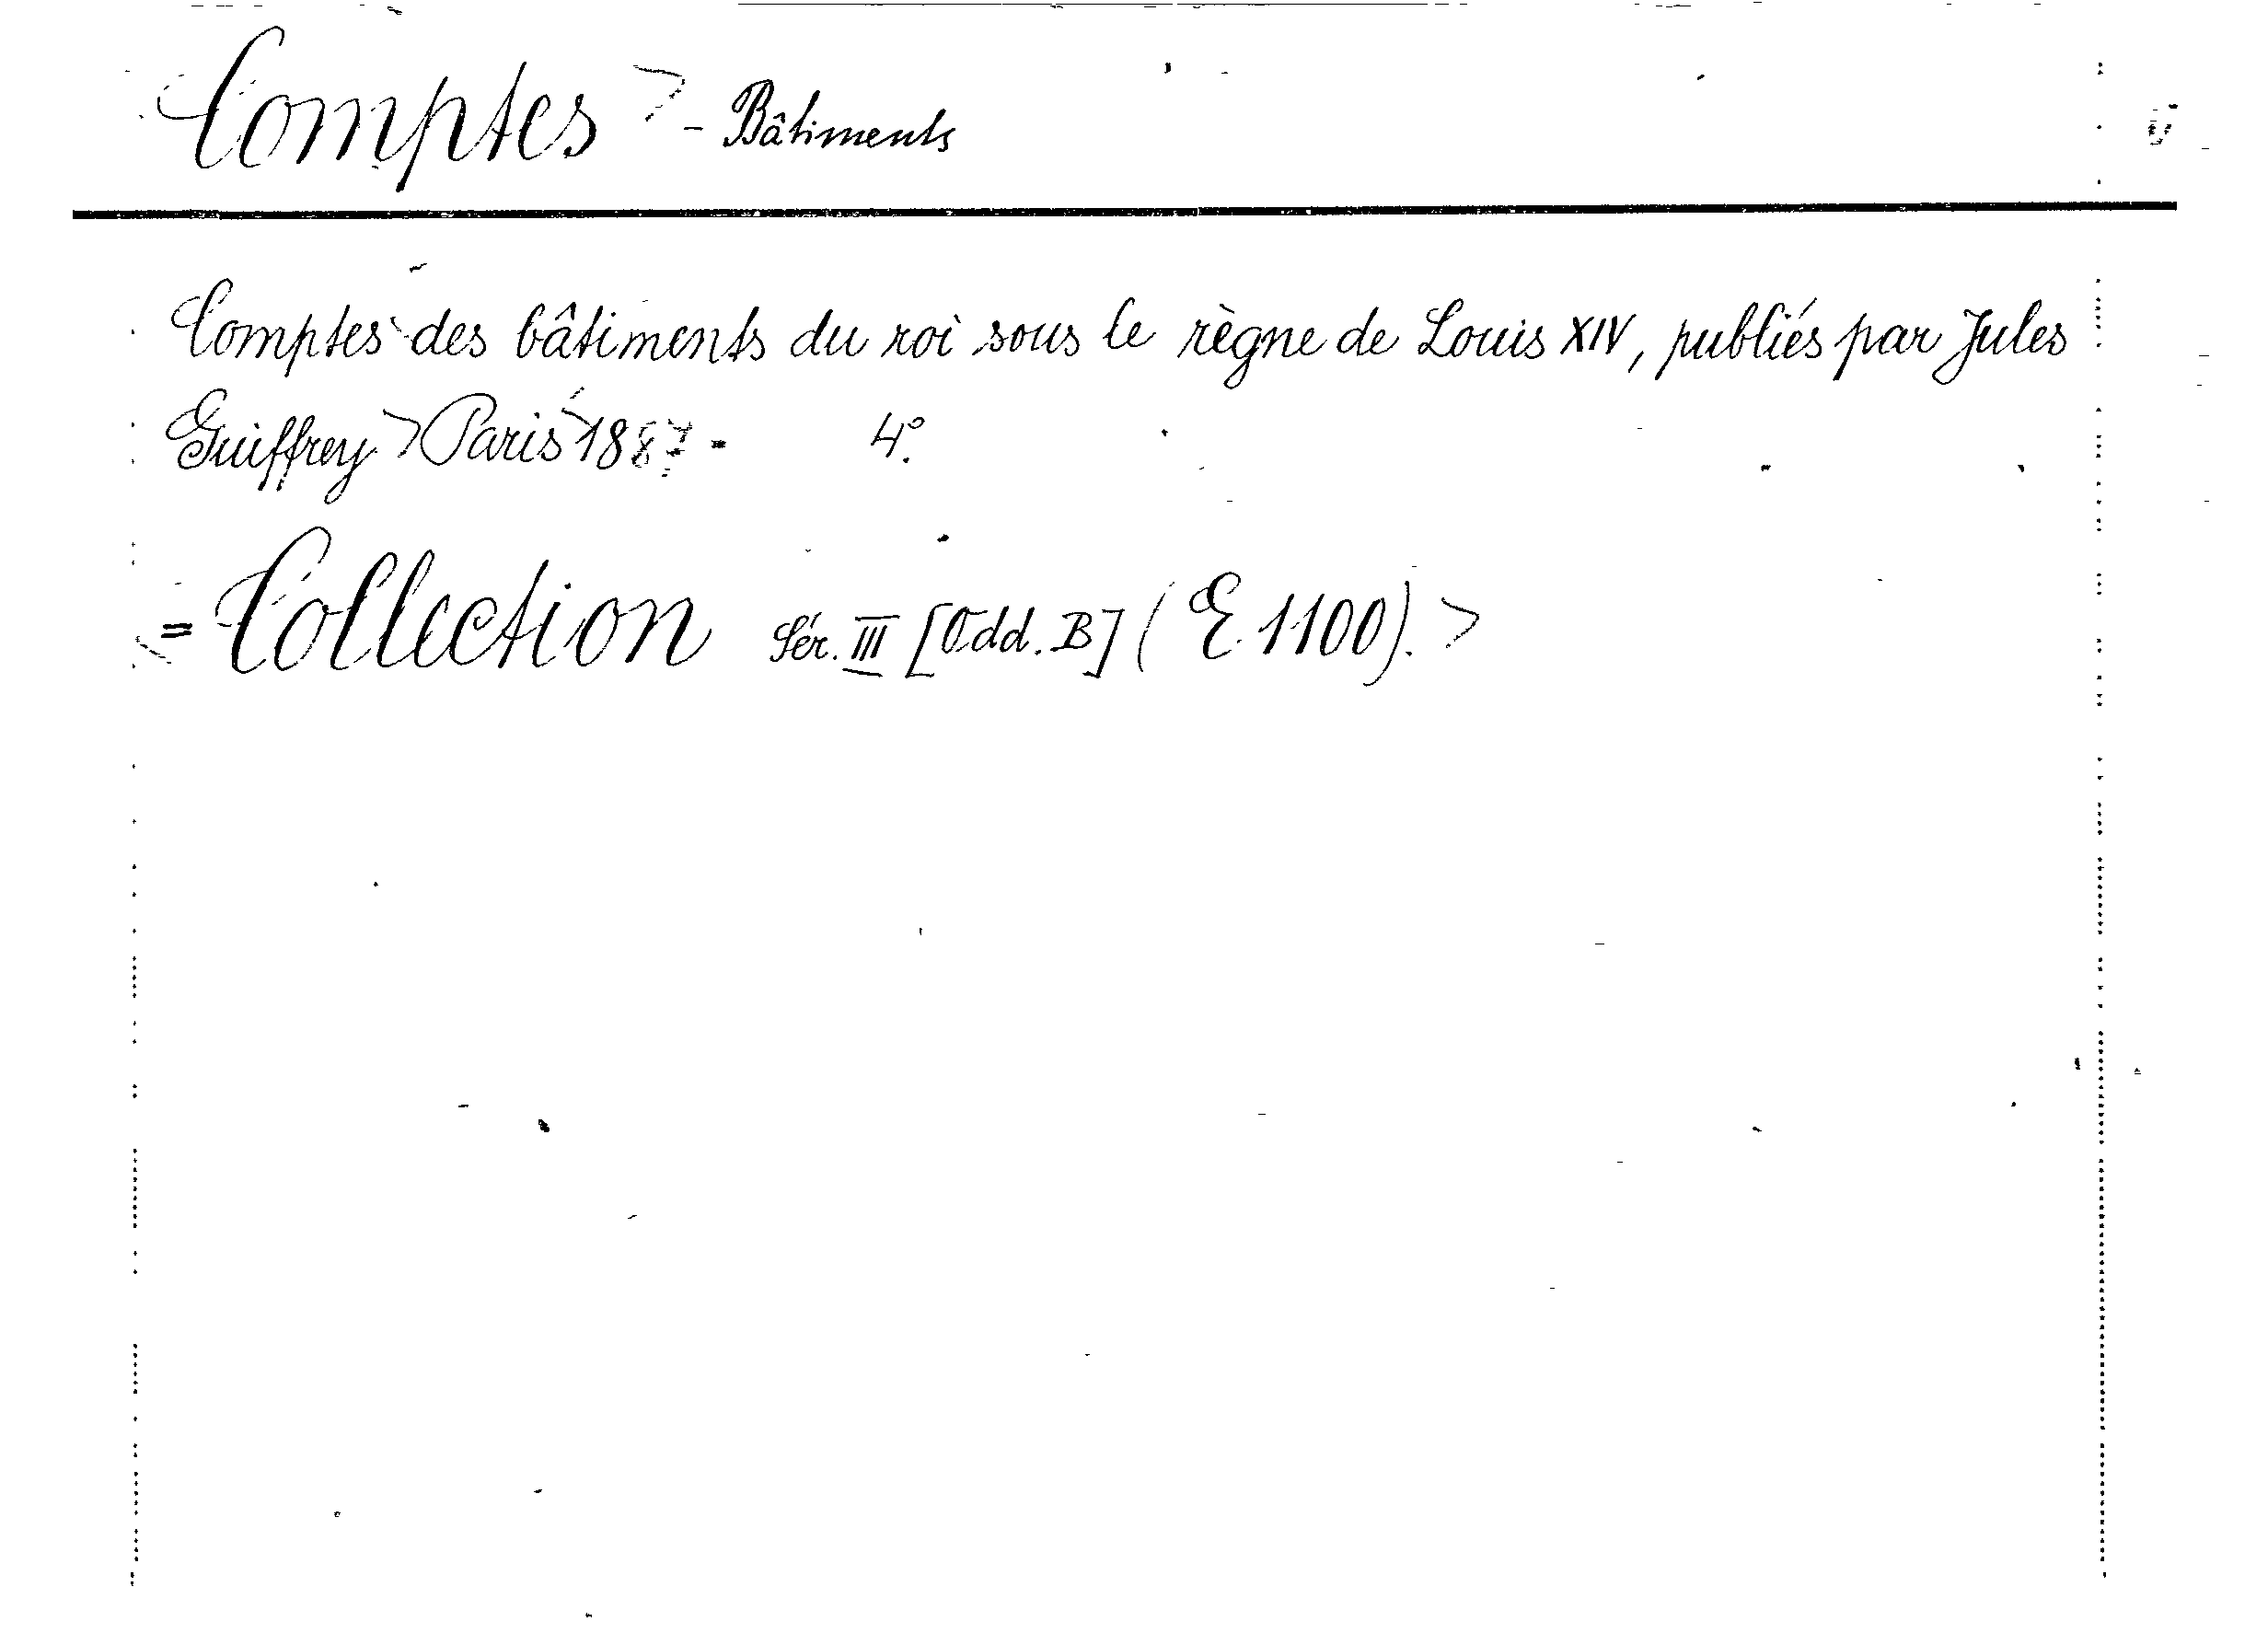 Comptes > - Bâtiments
Comptes des bâtiments du roi sous le règne de Louis XIV, publiés par Jules
Guiffrey > Paris 1887 - 4°.
= Collection Sér. III [Odd. B] (E. 1100). >